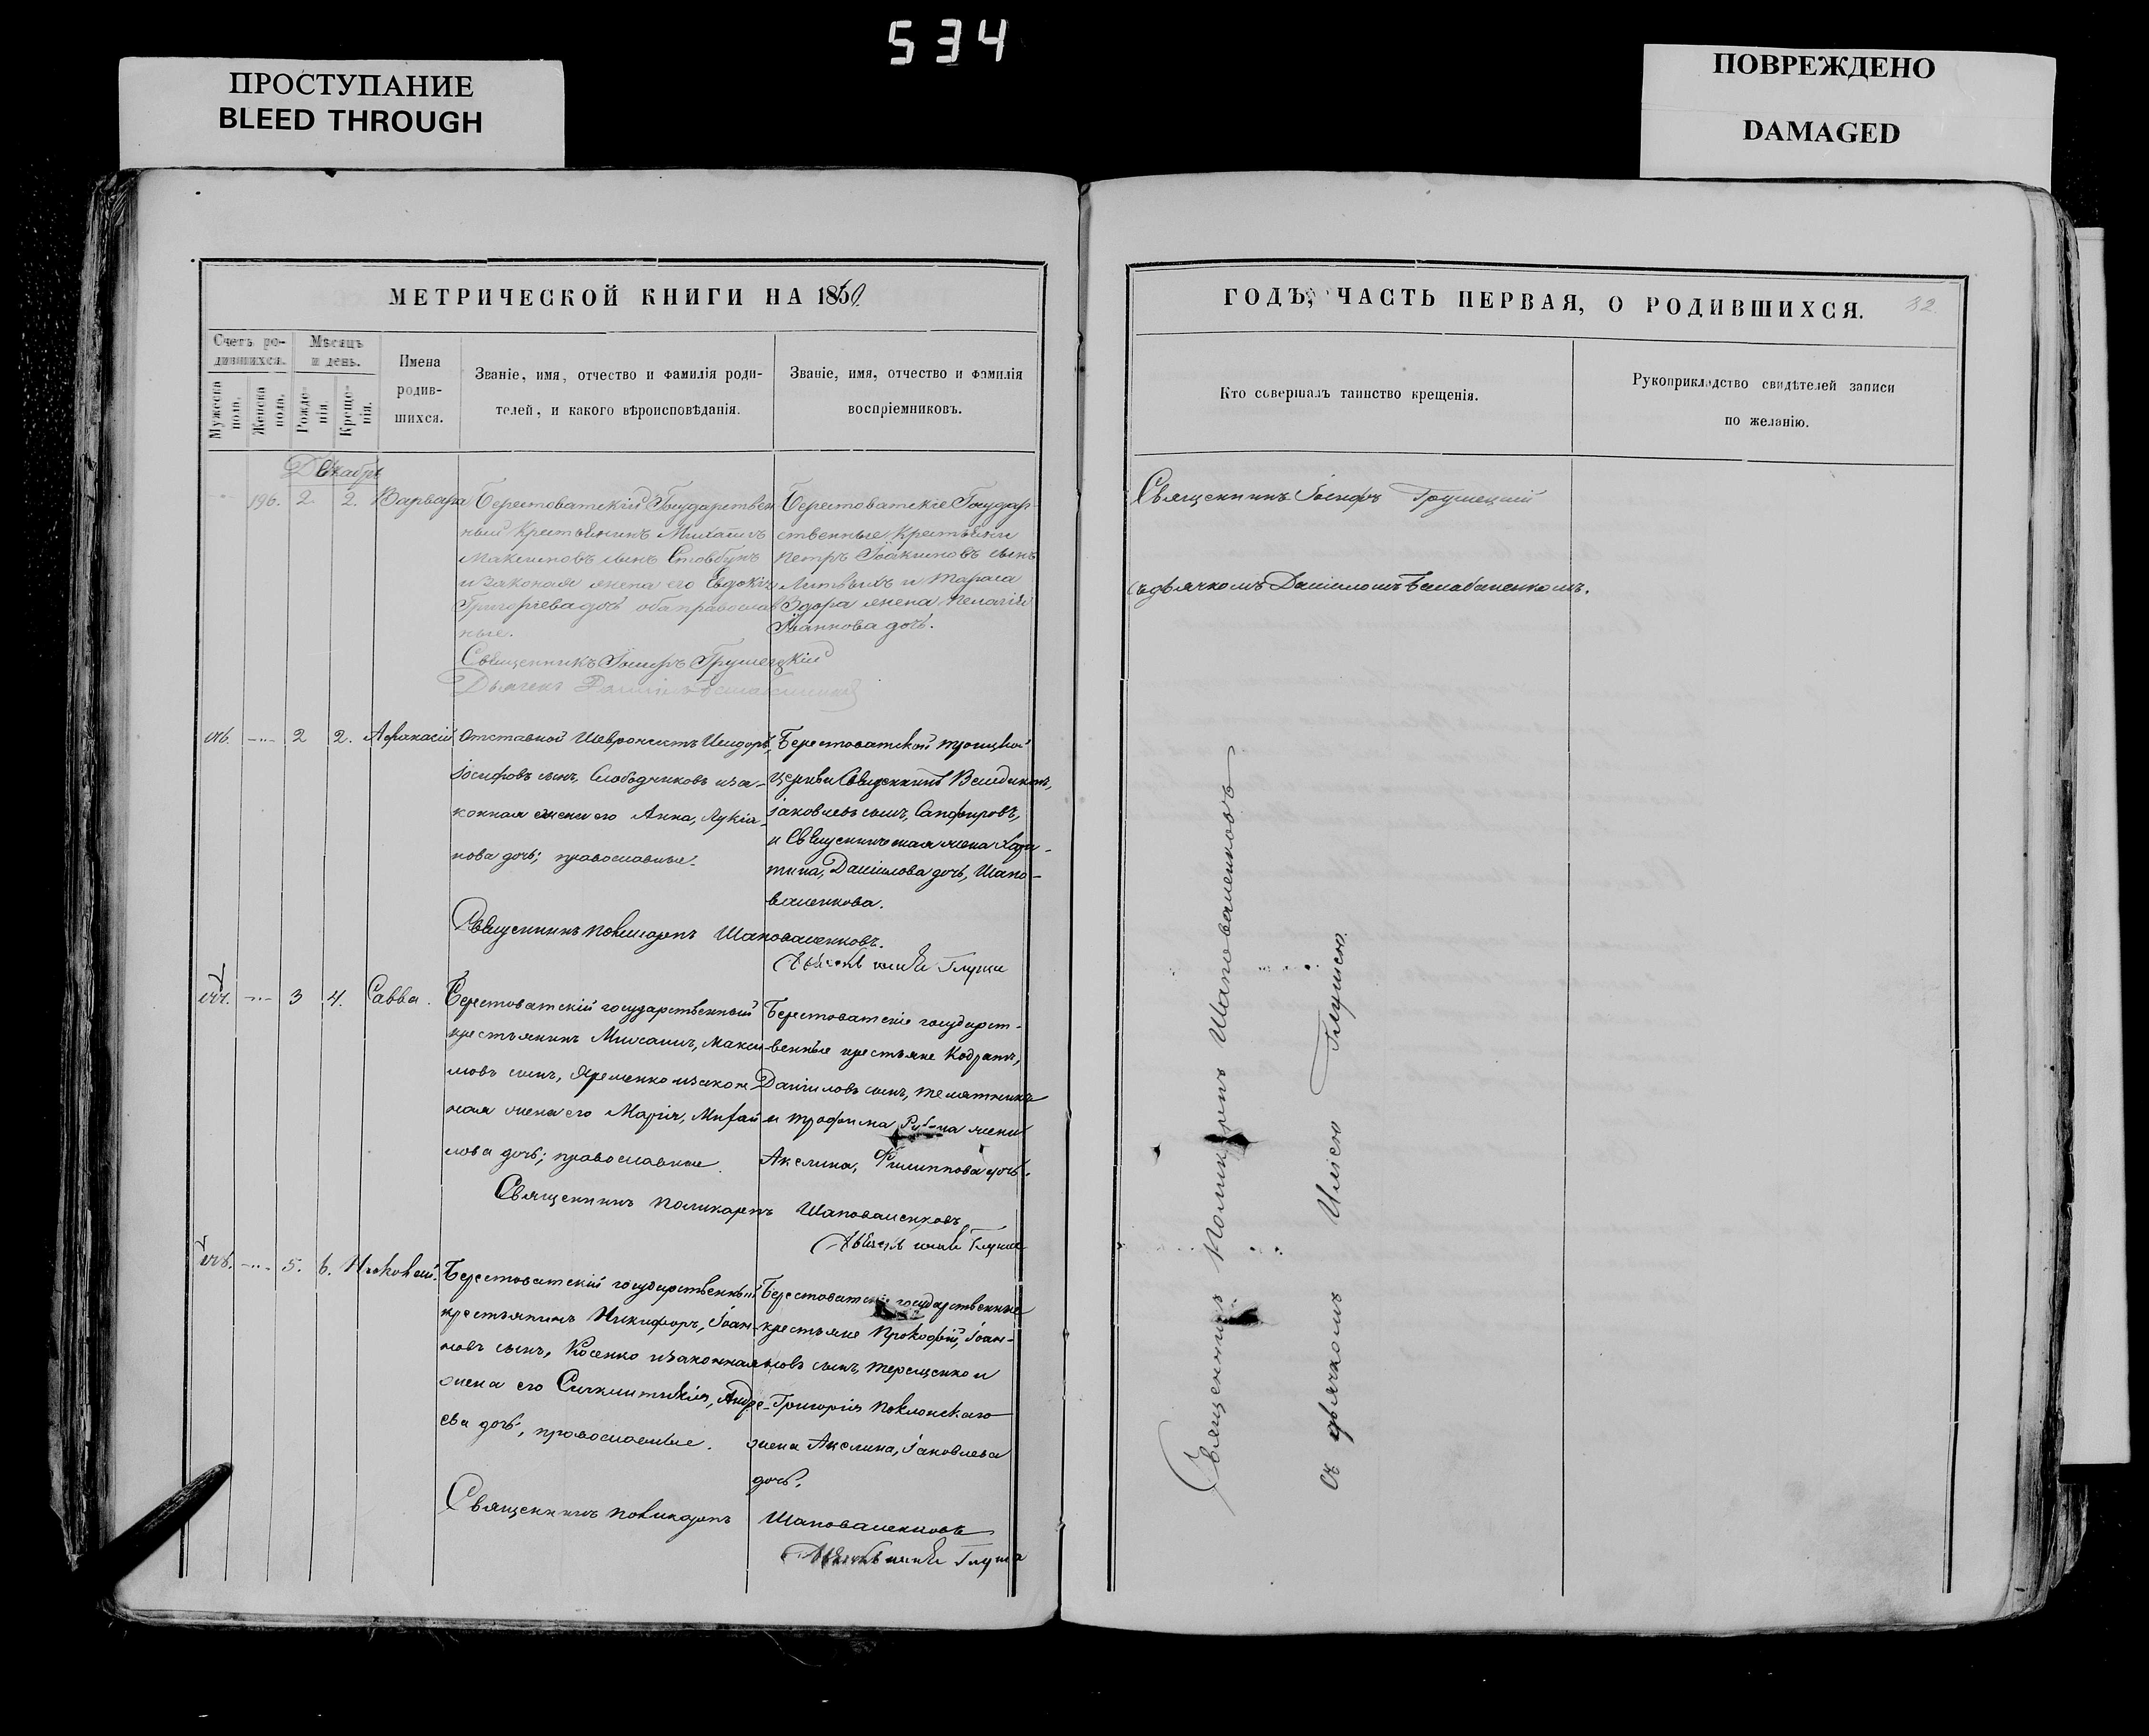 534
ПРОСТУПАНИЕ
BLEED THROUGH
ПОВРЕЖДЕНО
DAMAGED
МЕТРИЧЕСКОЙ КНИГИ НА 1860
Счетъ ро-
дившихся.
Мѣсяцъ
и день.
Мужеска
пола.
Женска
пола.
Рожде-
нія.
Креще-
нія.
Имена
родив-
шихся.
Званіе, имя, отчество и фамилія роди-
телей, и какого вѣроисповѣданія.
Званіе, имя, отчество и фамилія
воспріемниковъ.
Декабрь
196. 2 2. Варвара
Берестоватскій Государствен
ный Крестьянинъ Михаилъ
Максимовъ сынъ Стовбунъ
и законая жена его Евдокія
Григоріева дочь оба православ
ные.
Священникъ Іосифъ Грушецкій
Дьячекъ
Берестоватскіе Государ
ственные Крестьяни
Петръ Іоакимовъ сынъ
и Тараса
Здора жена Пелагія
Іоаннова дочь.
2 2. Афанасій
Отставной Исидоръ,
Іосифовъ сынъ, Слободчиковъ и за-
конная жена его Анна, Лукіа-
нова дочь; православные.
Священникъ Поликарпъ Шаповаленковъ.
Берестоватской Троицкой
церкви Священникъ
Іаковлевъ сынъ, Сапфировъ,
и Священническая жена Хари-
тина, Даніилова дочь, Шапо-
валенкова.
3 4. Савва.
Берестоватскій государственный
крестьянинъ Михаилъ, Макси
мовъ сынъ, Яременко и закон
ная жена его Марія, Михаи
лова дочь; православные.
Священникъ Поликарпъ Шаповаленковъ
Берестоватскіе государст-
венные крестьяне Кодратъ,
Даніиловъ сынъ, Телятникъ
и Трофима жена
Акелина, Филиппова дочь.
5. 6. Николай.
Берестоватскій государственный
крестьянинъ Никифоръ, Іоан-
новъ сынъ, Косенко и законная
жена его Андре-
ева дочь, православные.
Священникъ Поликарпъ Шаповаленковъ
Берестоватскіе государственные
крестьяне Прокофій, Іоан-
новъ сынъ, Терещенко и
Григорія Поклонскаго
жена Акелина, Іаковлева
дочь.
ГОДЪ, ЧАСТЬ ПЕРВАЯ, О РОДИВШИХСЯ.
82
Кто совершалъ таинство крещенія.
Рукоприкладство свидѣтелей записи
по желанію.
Священникъ Іосифъ Грушецкій
съ дьячкомъ Даніиломъ Балабаненкомъ.
Священникъ Поликарпъ Шаповаленковъ
съ дьячкомъ Ильею Глушею.